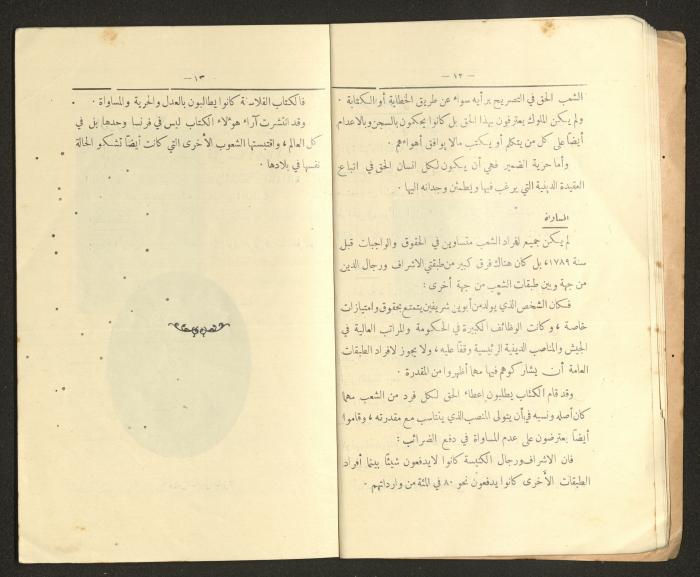 — ١٢ —
الشعب الحق في التصريح برأيه سواء عن طريق الخطابة أو الكتابة ٠
ولم يكن الملوك يعترفون بهذا الحق بل كانوا يحكمون بالسجن وبالاعدام
أيضاً على كل من يتكلم أو يكتب مالا يوافق أهواءهم ٠
وأما حرية الضمير فهي أن يكون لكل انسان الحق في اتباع
العقيدة الدينية التي يرغب فيها ويطمئن وجدانه اليها ٠
المساواة
لم يكن جميع افراد الشعب متساوين في الحقوق والواجبات قبل
سنة ١٧٨٩، بل كان هناك فرق كبير من طبقتي الاشراف ورجال الدين
من جهة وبين طبقات الشعب من جهة أخرى :
فكان الشخص الذي يولد من أبوين شريفين يتمتع بحقوق وامتيازات
خاصة ، وكانت الوظائف الكبيرة في الحكومة والمراتب العالية في
الجيش والمناصب الدينية الرئيسية وقفاً عليه ، ولا يجوز لافراد الطبقات
العامة أن يشاركوهم فيها مهما أظهروا من المقدرة ٠
وقد قام الكتاب يطلبون إعطاء الحق لكل فرد من الشعب مهما
كان أصله ونسبه في أن يتولى المنصب الذي يتناسب مع مقدرته ، وقاموا
أيضاً يعترضون على عدم المساواة في دفع الضرائب :
فان الاشراف ورجال الكنيسة كانوا لا يدفعون شيئاً بينما أفراد
الطبقات الأخرى كانوا يدفعون نحو ٨٠ في المئة من وارداتهم ٠
— ١٣ —
فالكتاب الفلاسفة كانوا يطالبون بالعدل والحرية والمساواة ٠
وقد انتشرت آراء هؤلاء الكتاب ليس في فرنسا وحدها بل في
كل العالم ، واقتبستها الشعوب الأخرى التي كانت أيضاً تشكو الحالة
نفسها في بلادها ٠